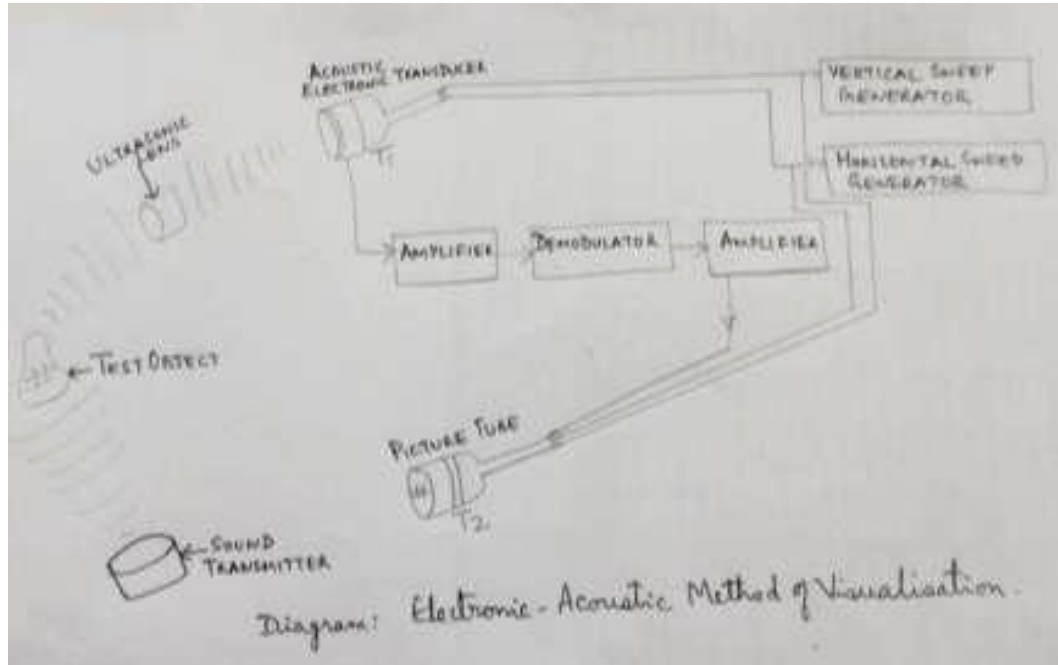 ACOUSTIC
ELECTRONIC TRANSDUCER
VERTICAL SWEEP
GENERATOR
ULTRASONIC
LENS
T1
HORIZONTAL SWEEP
GENERATOR
AMPLIFIER
DEMODULATOR
AMPLIFIER
TEST OBJECT
PICTURE TUBE
T2
SOUND
TRANSMITTER
Diagram: Electronic - Acoustic Method of Visualisation.